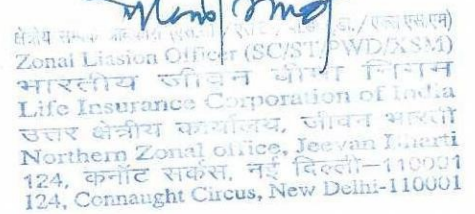 क्षेत्रीय
Zonal Liasion Officer (SC/ST/PWD/XSM)
भारतीय जीवन बीमा निगम
Life Insurance Corporation of India
उत्तर क्षेत्रीय कार्यालय, जीवन भारती
Northern Zonal office, Jeevan Bharti
124, कनॉट सर्कस, नई दिल्ली-110001
124, Connaught Circus, New Delhi-110001